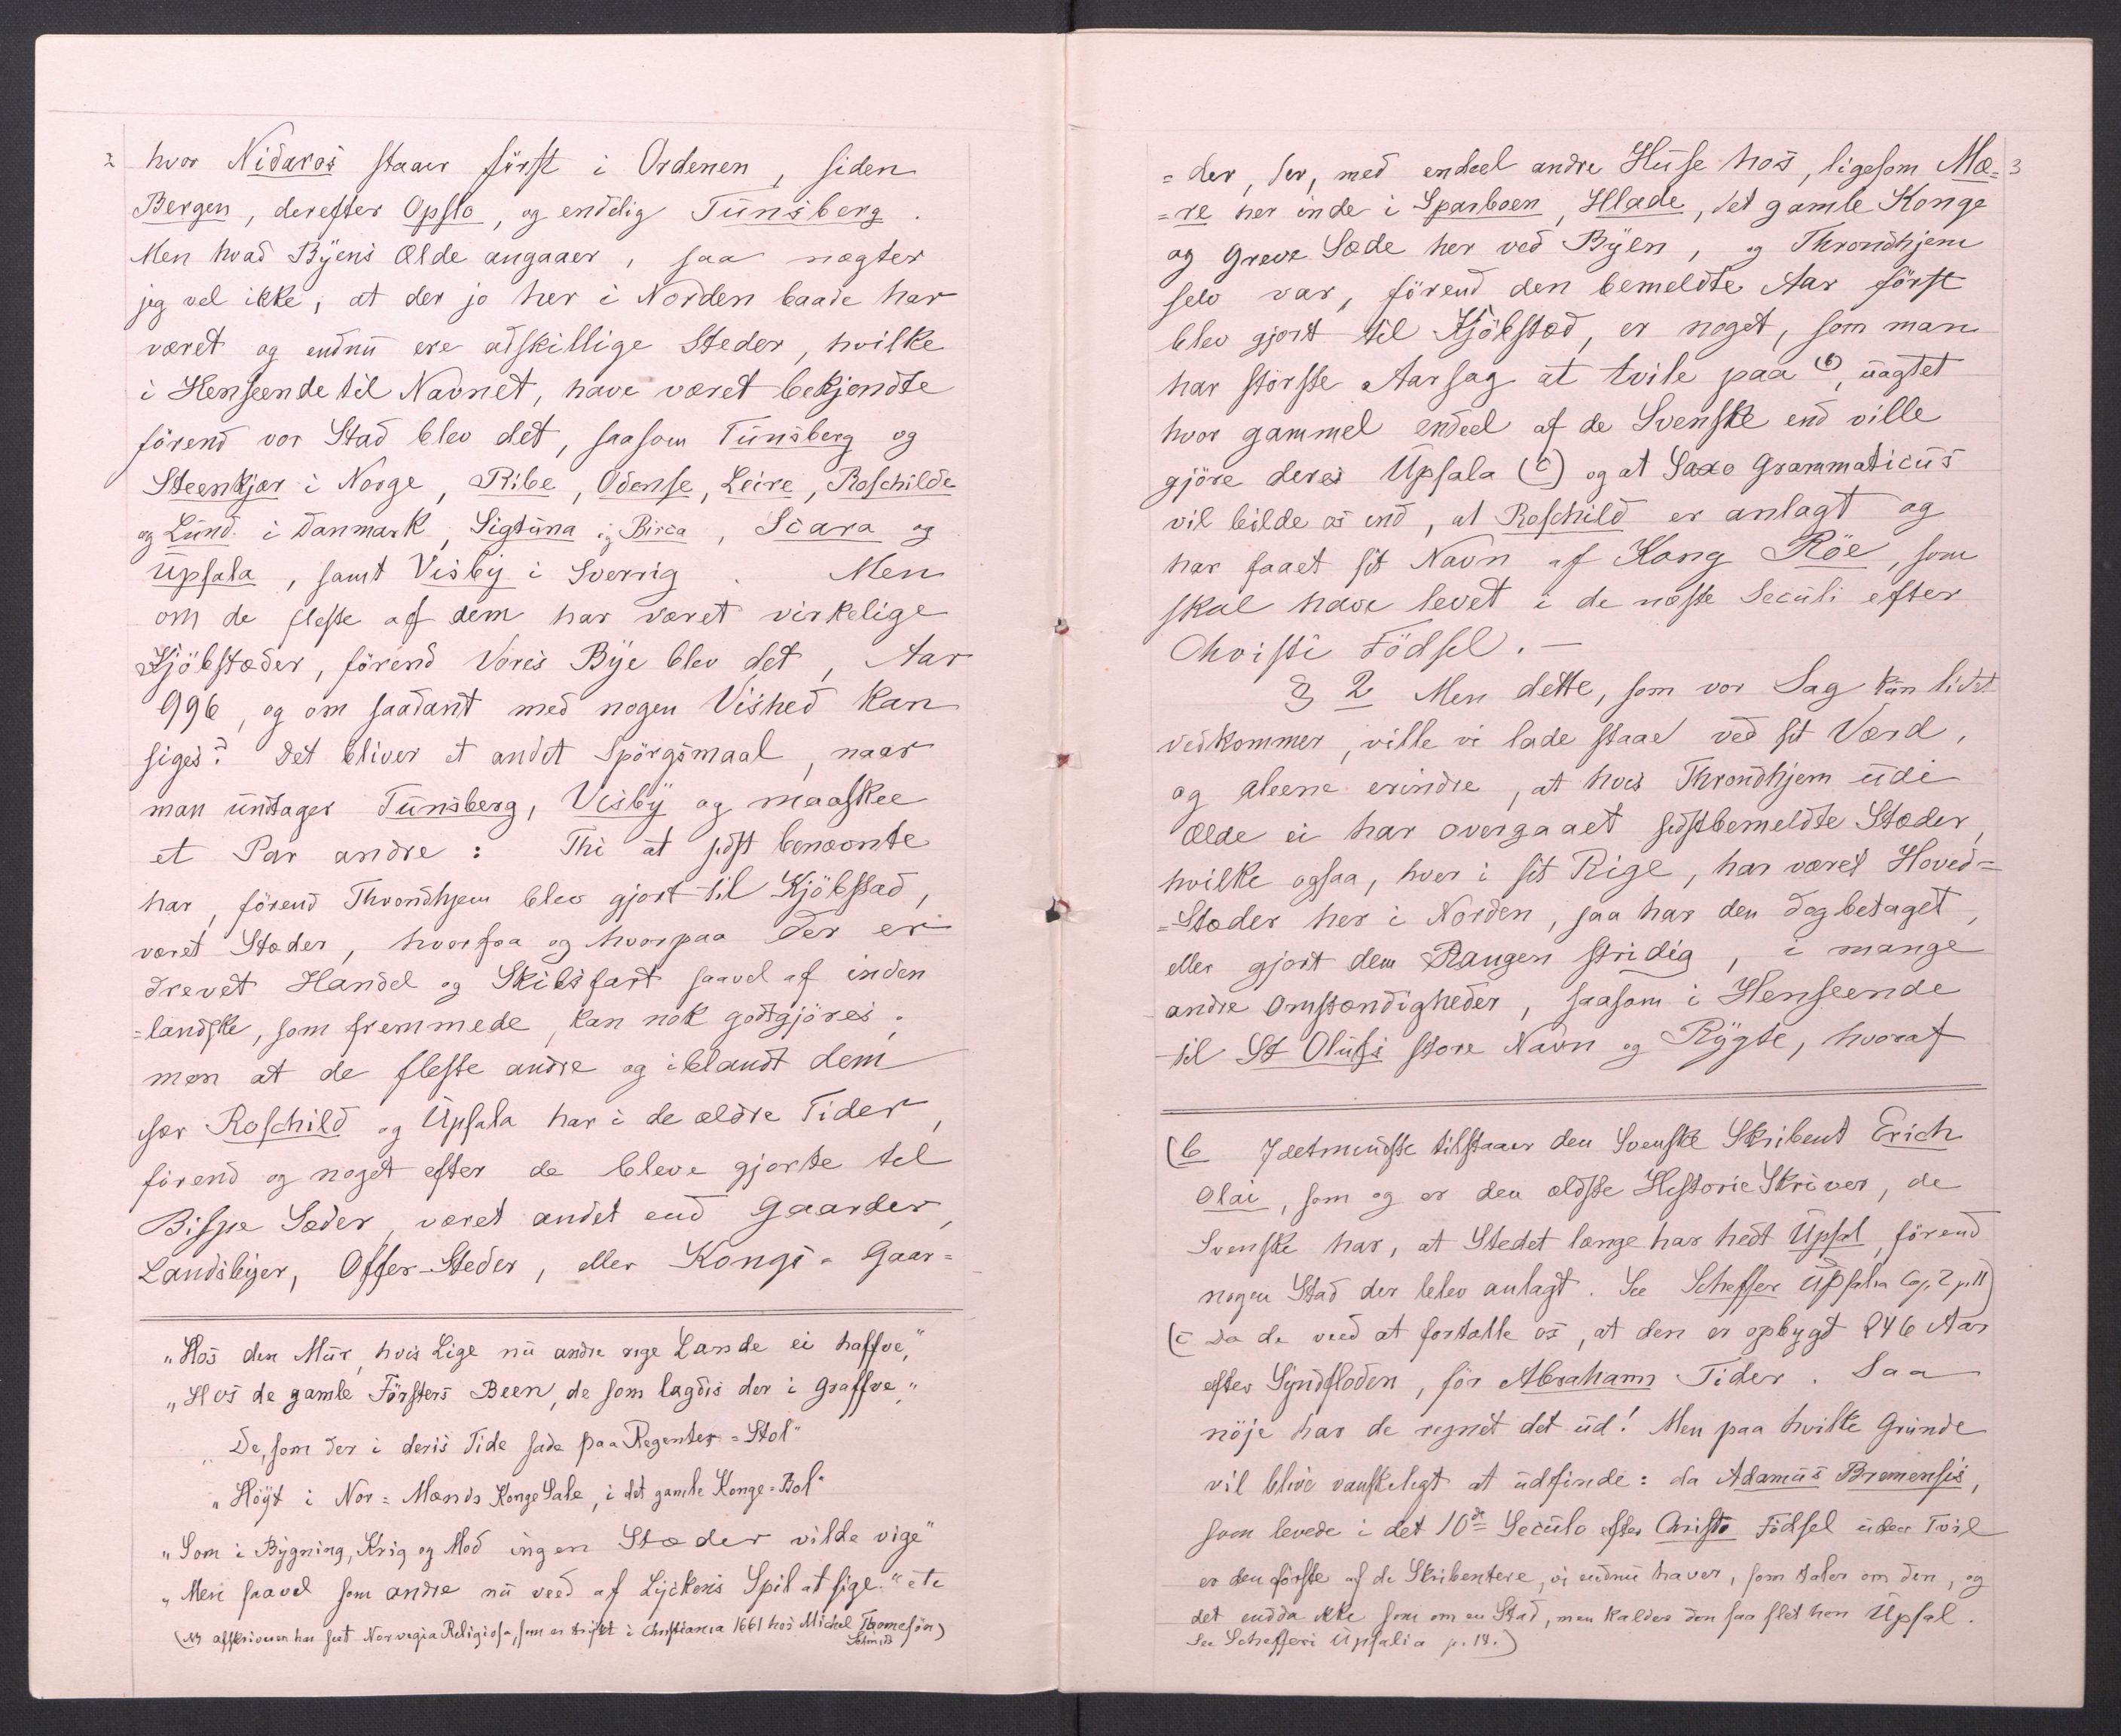 2
hvor Nidaros staaer först i Ordenen, siden
Bergen, derefter Opslo, og endelig Tunsberg.
Men hvad Byens Ælde angaaer, saa nægter
jeg vel ikke, at der jo her i Norden baade har
været og endnu ere adskillige Steder, hvilke
i Henseende til Navnet, have været bekjendte
förend vor Stad blev det, saasom Tunsberg og
Steenkjær i Norge, Ribe, Odense, Leire, Roschilde
og Lund i Danmark, Sigtuna og Birca, Scara og
Upsala, samt Visby i Sverrig. Men
om de fleste af dem har været virkelige
Kjöbstæder, förend Vores Bye blev det, Aar
996, og om saadant med nogen Vished kan
siges? Det bliver et andet Spörgsmaal, naar
man undtager Tunsberg, Visby og maaskee
et Par andre: Thi at sidst benævnte
har, förend Throndhjem blev gjort til Kjöbstad,
været Stæder, hvorfra og hvorpaa der er
drevet Handel og Skibsfart saavel af inden
=landske, som fremmede, kan nok godtgjöres;
men at de fleste andre og iblandt dem
især Roschild og Upsala har i de ældre Tider,
förend og noget efter de bleve gjorte til
Bispe Sæder, været andet end Gaarder,
Landsbyer, Offer-Steder, eller Kongs-Gaar=
„Hos den Muur, hvis Lige nu andre rige Lande ei haffve,"
„Hos de gamle Försters Been, de som lagdis der i Graffve,"
„De, som der i deris Tide sade paa Regenter=Stol"
„Höyt i Nor=Mænds Konge Sale, i det gamle Konge=Bol"
„Som i Bygning, Krig og Mod ingen Stæder vilde vige"
„Men saavel som andre nu veed af Lyckens Spil at sige." etc
(NB afskriveren har seet Norvegia Religiosa, som er trÿkt i Christiania 1661 hos Michel Thomesön)
Schmidt
3
=der, der, med endeel andre Huse hos, ligesom Mæ=
=re her inde i Sparboen, Hlade, det gamle Konge
og Greve Sæde her ved Byen, og Throndhjem
selv var, förend den bemeldte Aar först
blev gjort til Kjöbstad, er noget, som man
har störste Aarsag at tvile paa (b), uagtet
hvor gammel endeel af de Svenske end ville
gjöre deres Upsala (c) og at Saxo Grammaticus
vil bilde os ind, at Roschild er anlagt og
har faaet sit Navn af Kong Röe, som
skal have levet i de næste Seculi efter
Christi Födsel. —
§ 2 Men dette, som vor Sag kun lidet
vedkommer, ville vi lade staae ved sit Værd,
og aleene erindre, at hvis Throndhjem udi
Ælde ei har overgaaet sidstbemeldte Stæder,
hvilke ogsaa, hver i sit Rige, har været Hoved=
=Stæder her i Norden, saa har den dog betaget,
eller gjort dem Rangen stridig, i mange
andre Omstændigheder, saasom i Henseende
til St Olufs store Navn og Rygte, hvoraf
(b Idetmindste tilstaaer den Svenske Skribent Erich
Olai, som og er den ældste HistorieSkriver, de
Svenske har, at Stedet længe har hedt Upsal, förend
nogen Stad der blev anlagt. See Scheffer Upsalia Cap. 2 p. 11)
(c Da de veed at fortælle os, at den er opbygt 246 Aar
efter Syndfloden, för Abrahams Tider. Saa
nöje har de regnet det ud! Men paa hvilke Grunde
vil blive vanskeligt at udfinde: da Adamus Bremensis,
som levede i det 10de Seculo efter Christi Födsel uden Tvil
er den förste af de Skribentere, vi endnu haver, som taler om den, og
det endda ikke som om en Stad, men kalder den saa slet hen Upsal.
See Schefferi Upsalia p. 14.)